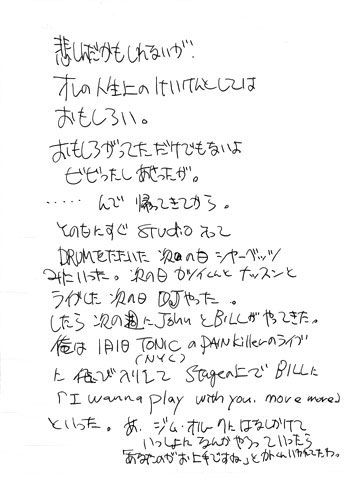 悲しんだかもしれないが、
オレの人生上のけいけんとしては
おもしろい。
おもしろがってただけでもないよ
ビビったし あせったが。
‥‥‥んで 帰ってきてから。
そのままにすぐ STUDIO 入って
DRUMをたたいた 次の日 シャーベッツ
みにいった。次の日 カツイくんと ナッスンと
ライブした 次の日 DJやった 。
したら 次の週に John と BILL がやってきた。
俺は 1月1日 TONIC の PAINKillerのライブ
(NYC)
に 飛び入りして Stageの上で BILLに
「I wanna play with you. more more」
といった。あ、ジム・オルークに はなしかけて
いっしょに なんか やろう っていったら
「あなたのがお上手ですね」と